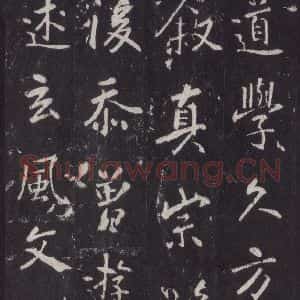 道學久方
敘真宗
復忝曾遊
述玄風文
Shufawang.CN